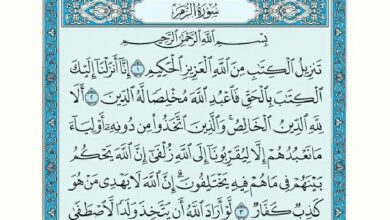 سُورَةُ الزُّمَرِ
بِسْمِ اللَّهِ الرَّحْمَٰنِ الرَّحِيمِ
تَنزِيلُ الْكِتَابِ مِنَ اللَّهِ الْعَزِيزِ الْحَكِيمِ ١ إِنَّا أَنزَلْنَا إِلَيْكَ
الْكِتَابَ بِالْحَقِّ فَاعْبُدِ اللَّهَ مُخْلِصًا لَّهُ الدِّينَ ٢ أَلَا
لِلَّهِ الدِّينُ الْخَالِصُ وَالَّذِينَ اتَّخَذُوا مِن دُونِهِ أَوْلِيَاءَ
مَا نَعْبُدُهُمْ إِلَّا لِيُقَرِّبُونَا إِلَى اللَّهِ زُلْفَىٰ إِنَّ اللَّهَ يَحْكُمُ
بَيْنَهُمْ فِي مَا هُمْ فِيهِ يَخْتَلِفُونَ إِنَّ اللَّهَ لَا يَهْدِي مَنْ هُوَ
كَاذِبٌ كَفَّارٌ ٣ لَّوْ أَرَادَ اللَّهُ أَن يَتَّخِذَ وَلَدًا لَّاصْطَفَىٰ